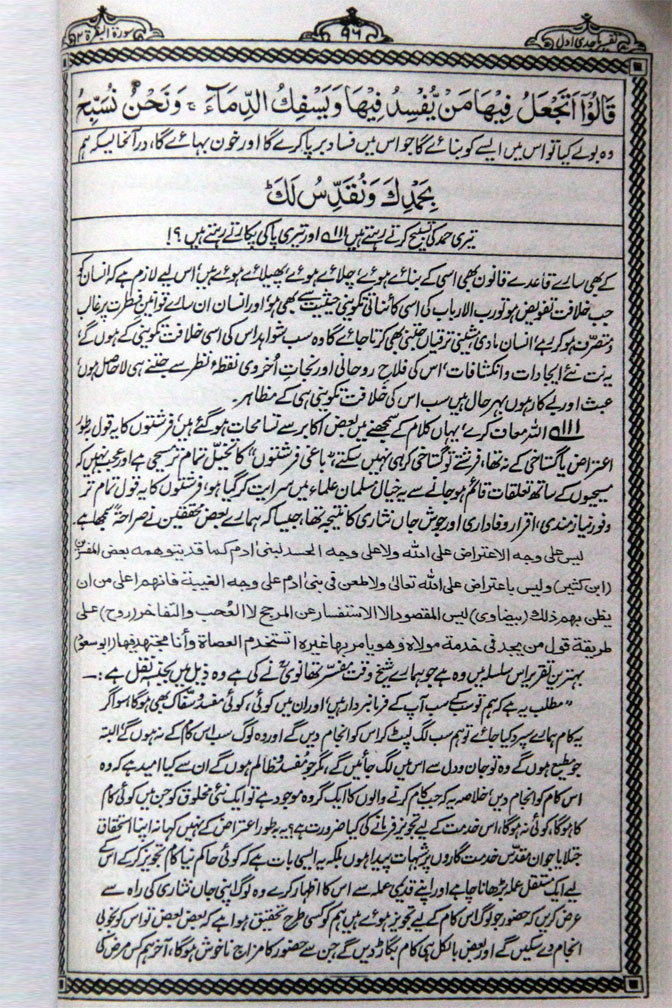 تفسیر ماجدی اول ۹۶ سورة البقرة ۲
قَالُوْٓا اَتَجْعَلُ فِيْهَا مَنْ يُّفْسِدُ فِيْهَا وَيَسْفِكُ الدِّمَآءَ ۚ وَنَحْنُ نُسَبِّحُ
وہ بولے کیا تو اس میں ایسے کو بنائے گا جو اس میں فساد برپا کرے گا اور خون بہائے گا، درآنحالیکہ ہم
بِحَمْدِكَ وَنُقَدِّسُ لَكَ ؕ
تیری حمد کی تسبیح کرتے رہتے ہیں ۱۱۱ اور تیری پاکی پکارتے رہتے ہیں ؟!
کے بھی سارے قاعدے قانون بھی اسی کے بنائے ہوئے، چلائے ہوئے، پھیلائے ہوئے ہیں، اس لیے لازم ہے کہ انسان کو
جب خلافت تفویض ہو تو رب الارباب کی اسی کائناتی تکوینی حیثیت سے بھی ہو، اور انسان ان سارے قوانین فطرت پر غالب
و متصرف ہو کر رہے، انسان مادی مشینی ترقیاں جتنی بھی کرتا جائے گا وہ سب شواہد اس کی اسی خلافت تکوینی کے ہوں گے،
یہ نت نئے ایجادات و انکشافات، اس کی فلاح روحانی اور نجات اُخروی نقطۂ نظر سے جتنے ہی لاحاصل ہوں،
عبث اور بے کار ہوں بہرحال ہیں سب اس کی خلافت تکوینی ہی کے مظاہر۔
۱۱۱ اللہ معاف کرے، یہاں کلام کے سمجھنے میں بعض اکابر سے تسامحات ہو گئے ہیں، فرشتوں کا یہ قول بطور
اعتراض یا گستاخی کے نہ تھا، فرشتے تو گستاخی کر ہی نہیں سکتے، "باغی فرشتوں" کا تخیل تمام تر مسیحی ہے اور عجب نہیں کہ
مسیحیوں کے ساتھ تعلقات قائم ہو جانے سے یہ خیال مسلمان علماء میں سرایت کر گیا ہو، فرشتوں کا یہ قول تمام تر
وفور نیازمندی، اقرار وفاداری اور جوش جاں نثاری کا نتیجہ تھا، جیسا کہ ہمارے بعض محققین نے صراحۃً سمجھا ہے۔
ليس على وجه الاعتراض على الله ولا على وجه الحسد لبنى ادم كما قد يتوهمه بعض المفسرين
(ابن كثير) وليس باعتراض على الله تعالىٰ ولا طعن فى بنى ادم على وجه الغيبة فانهم اعلى من ان
يظن بهم ذلك (بيضاوى) ليس المقصود الا الاستفسار عن المرجح لا العُجب والتفاخر (روح) على
طريقة قول من يجد فى خدمة مولاه وهو يامر بها غيره اتستخدم العصاة وأنا مجتهد فيها (ابو سعود)
بہترین تقریر اس سلسلہ میں وہ ہے جو ہمارے شیخ وقت مفسر تھانویؒ نے کی ہے وہ ذیل میں بجنسہٖ نقل ہے :۔
"مطلب یہ ہے کہ ہم تو سب کے سب آپ کے فرمانبردار ہیں اور ان میں کوئی، کوئی مفسد و سفاک بھی ہوگا، سو اگر
یہ کام ہمارے سپرد کیا جائے تو ہم سب لگ لپٹ کر اس کو انجام دیں گے اور وہ لوگ سب اس کام کے نہ ہوں گے، البتہ
جو مطیع ہوں گے وہ تو جان و دل سے اس میں لگ جائیں گے، مگر جو مفسد و ظالم ہوں گے ان سے کیا امید ہے کہ وہ
اس کام کو انجام دیں، خلاصہ یہ کہ جب کام کرنے والوں کا ایک گروہ موجود ہے تو ایک نئی مخلوق کو جن میں کوئی کام
کا ہوگا، کوئی نہ ہوگا، اس خدمت کے لیے تجویز فرمانے کی کیا ضرورت ہے؟ یہ بطور اعتراض کے نہیں کہا نہ اپنا استحقاق
جتلایا جو ان مقدس خدمت گاروں پر شبہات پیدا ہوں بلکہ یہ ایسی بات ہے کہ کوئی حاکم نیا کام تجویز کر کے اس کے
لیے ایک مستقل عملہ بڑھانا چاہے اور اپنے قدیمی عملہ سے اس کا اظہار کرے وہ لوگ اپنی جاں نثاری کی راہ سے
عرض کریں کہ حضور جو لوگ اس کام کے لیے تجویز ہوئے ہیں ہم کو کسی طرح تحقیق ہوا ہے کہ بعض بعض تو اس کو بخوبی
انجام دے سکیں گے اور بعض بالکل ہی کام بگاڑ دیں گے جن سے حضور کا مزاج ناخوش ہوگا، آخر ہم کس مرض کی